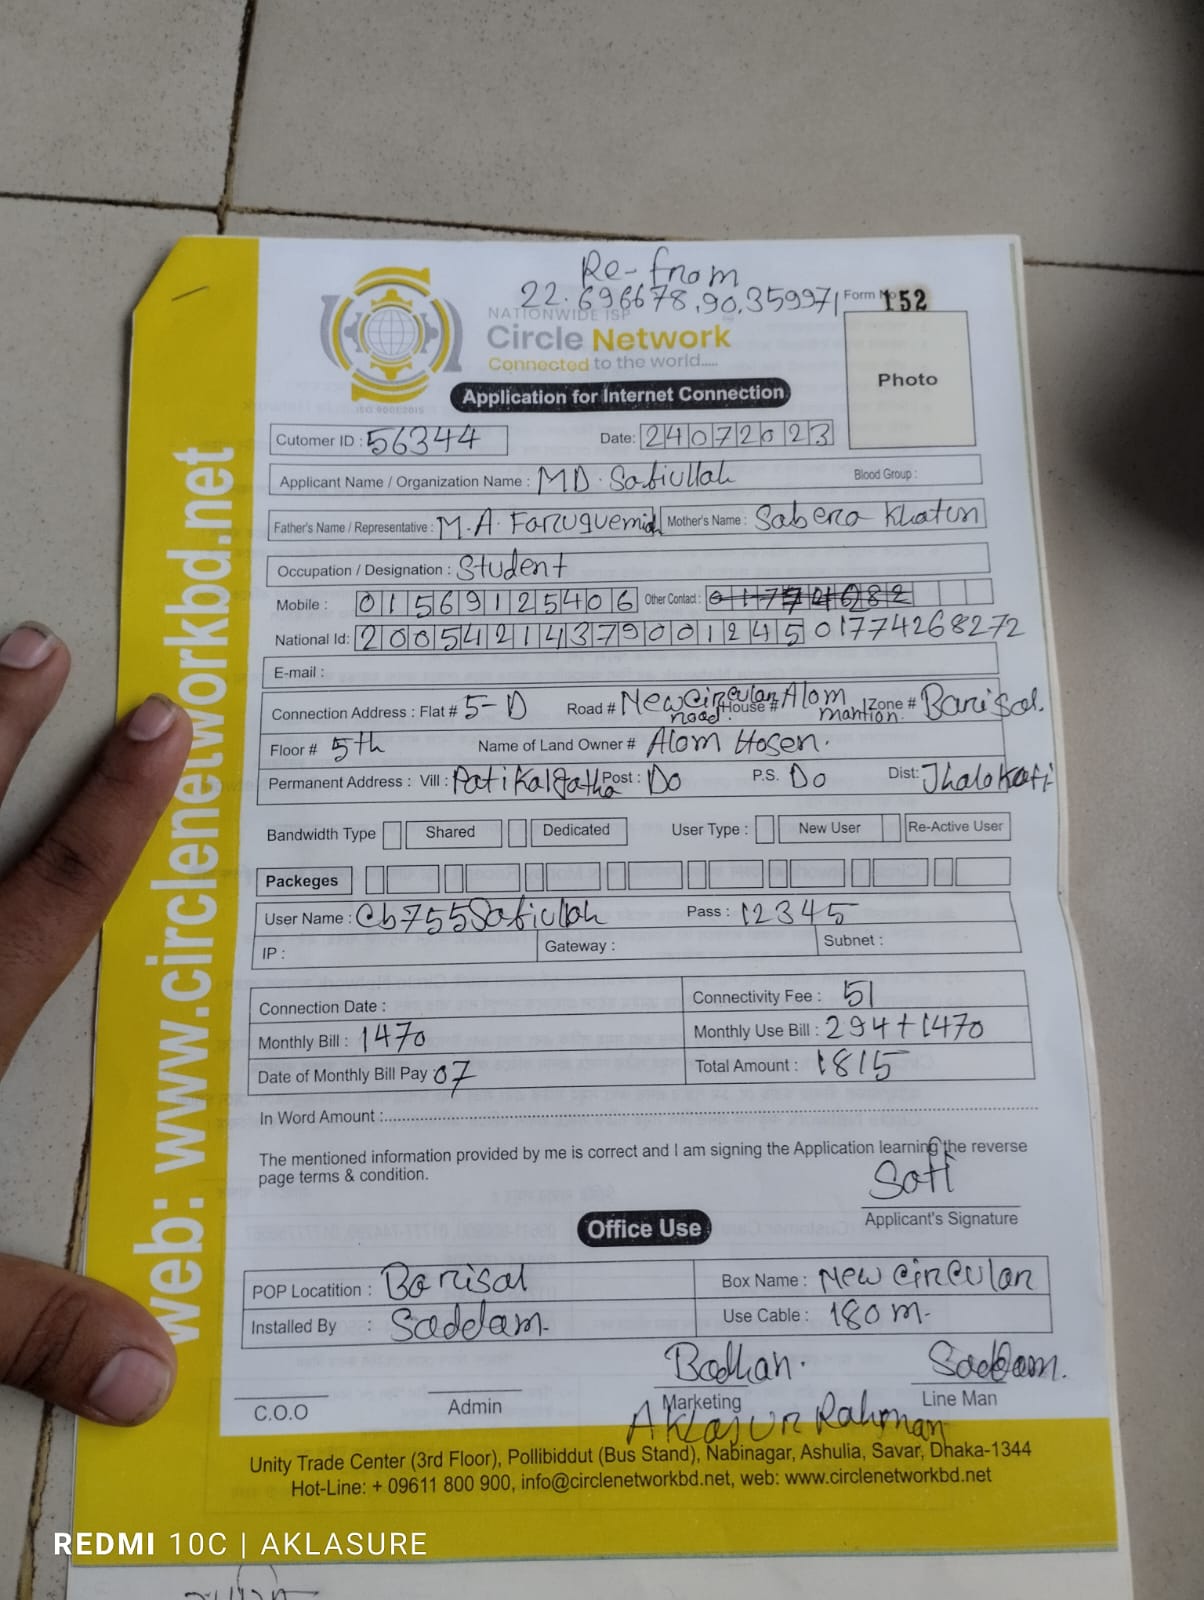 Re-from
22.696678,90.359971
Form No 152
NATIONWIDE ISP
Circle Network
Connected to the world.....
ISO 9001:2015
Photo
Application for Internet Connection
Cutomer ID : 56344 Date: 24072023
Applicant Name / Organization Name : MD. Safiullah Blood Group :
Father's Name / Representative : M.A. Faruquemia Mother's Name : Sabera Khatun
Occupation / Designation : Student
Mobile : 01569125406 Other Contact :
National Id: 20054214379001245 01774268272
E-mail :
Connection Address : Flat # 5-D Road # New circular road. House # Alom mantion. Zone # Barisal.
Floor # 5th Name of Land Owner # Alom Hosen.
Permanent Address : Vill : Patikalgatha Post : Do P.S. Do Dist: Jhalokati
Bandwidth Type Shared Dedicated User Type : New User Re-Active User
Packeges
User Name : Cb755Safiullah Pass : 12345
IP : Gateway : Subnet :
Connection Date : Connectivity Fee : 51
Monthly Bill : 1470 Monthly Use Bill : 294+1470
Date of Monthly Bill Pay 07 Total Amount : 1815
In Word Amount :
The mentioned information provided by me is correct and I am signing the Application learning the reverse
page terms & condition.
Safi
Applicant's Signature
Office Use
POP Locatition : Barisal Box Name : New circular
Installed By : Saddam. Use Cable : 180 m.
Badhan. Saddam.
C.O.O Admin Marketing Line Man
Aklasur Rahman
Unity Trade Center (3rd Floor), Pollibiddut (Bus Stand), Nabinagar, Ashulia, Savar, Dhaka-1344
Hot-Line: + 09611 800 900, info@circlenetworkbd.net, web: www.circlenetworkbd.net
web: www.circlenetworkbd.net
REDMI 10C | AKLASURE